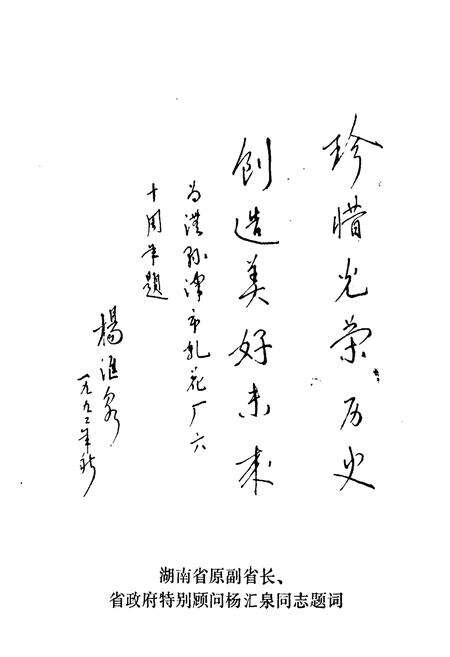 珍惜光荣历史
創造美好未来
为津市轧花厂六
十周年题
楊汇泉
一九九二年秋
湖南省原副省长、
省政府特别顾问杨汇泉同志题词